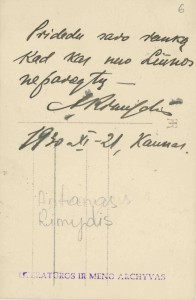 6
Pridedu savo ranką
Kad kas nuo Liūnės
nepabėgtų —
A Rimydis
1930-XI-21, Kaunas.
Antanas
Rimydis
LITERATŪROS IR MENO ARCHYVAS